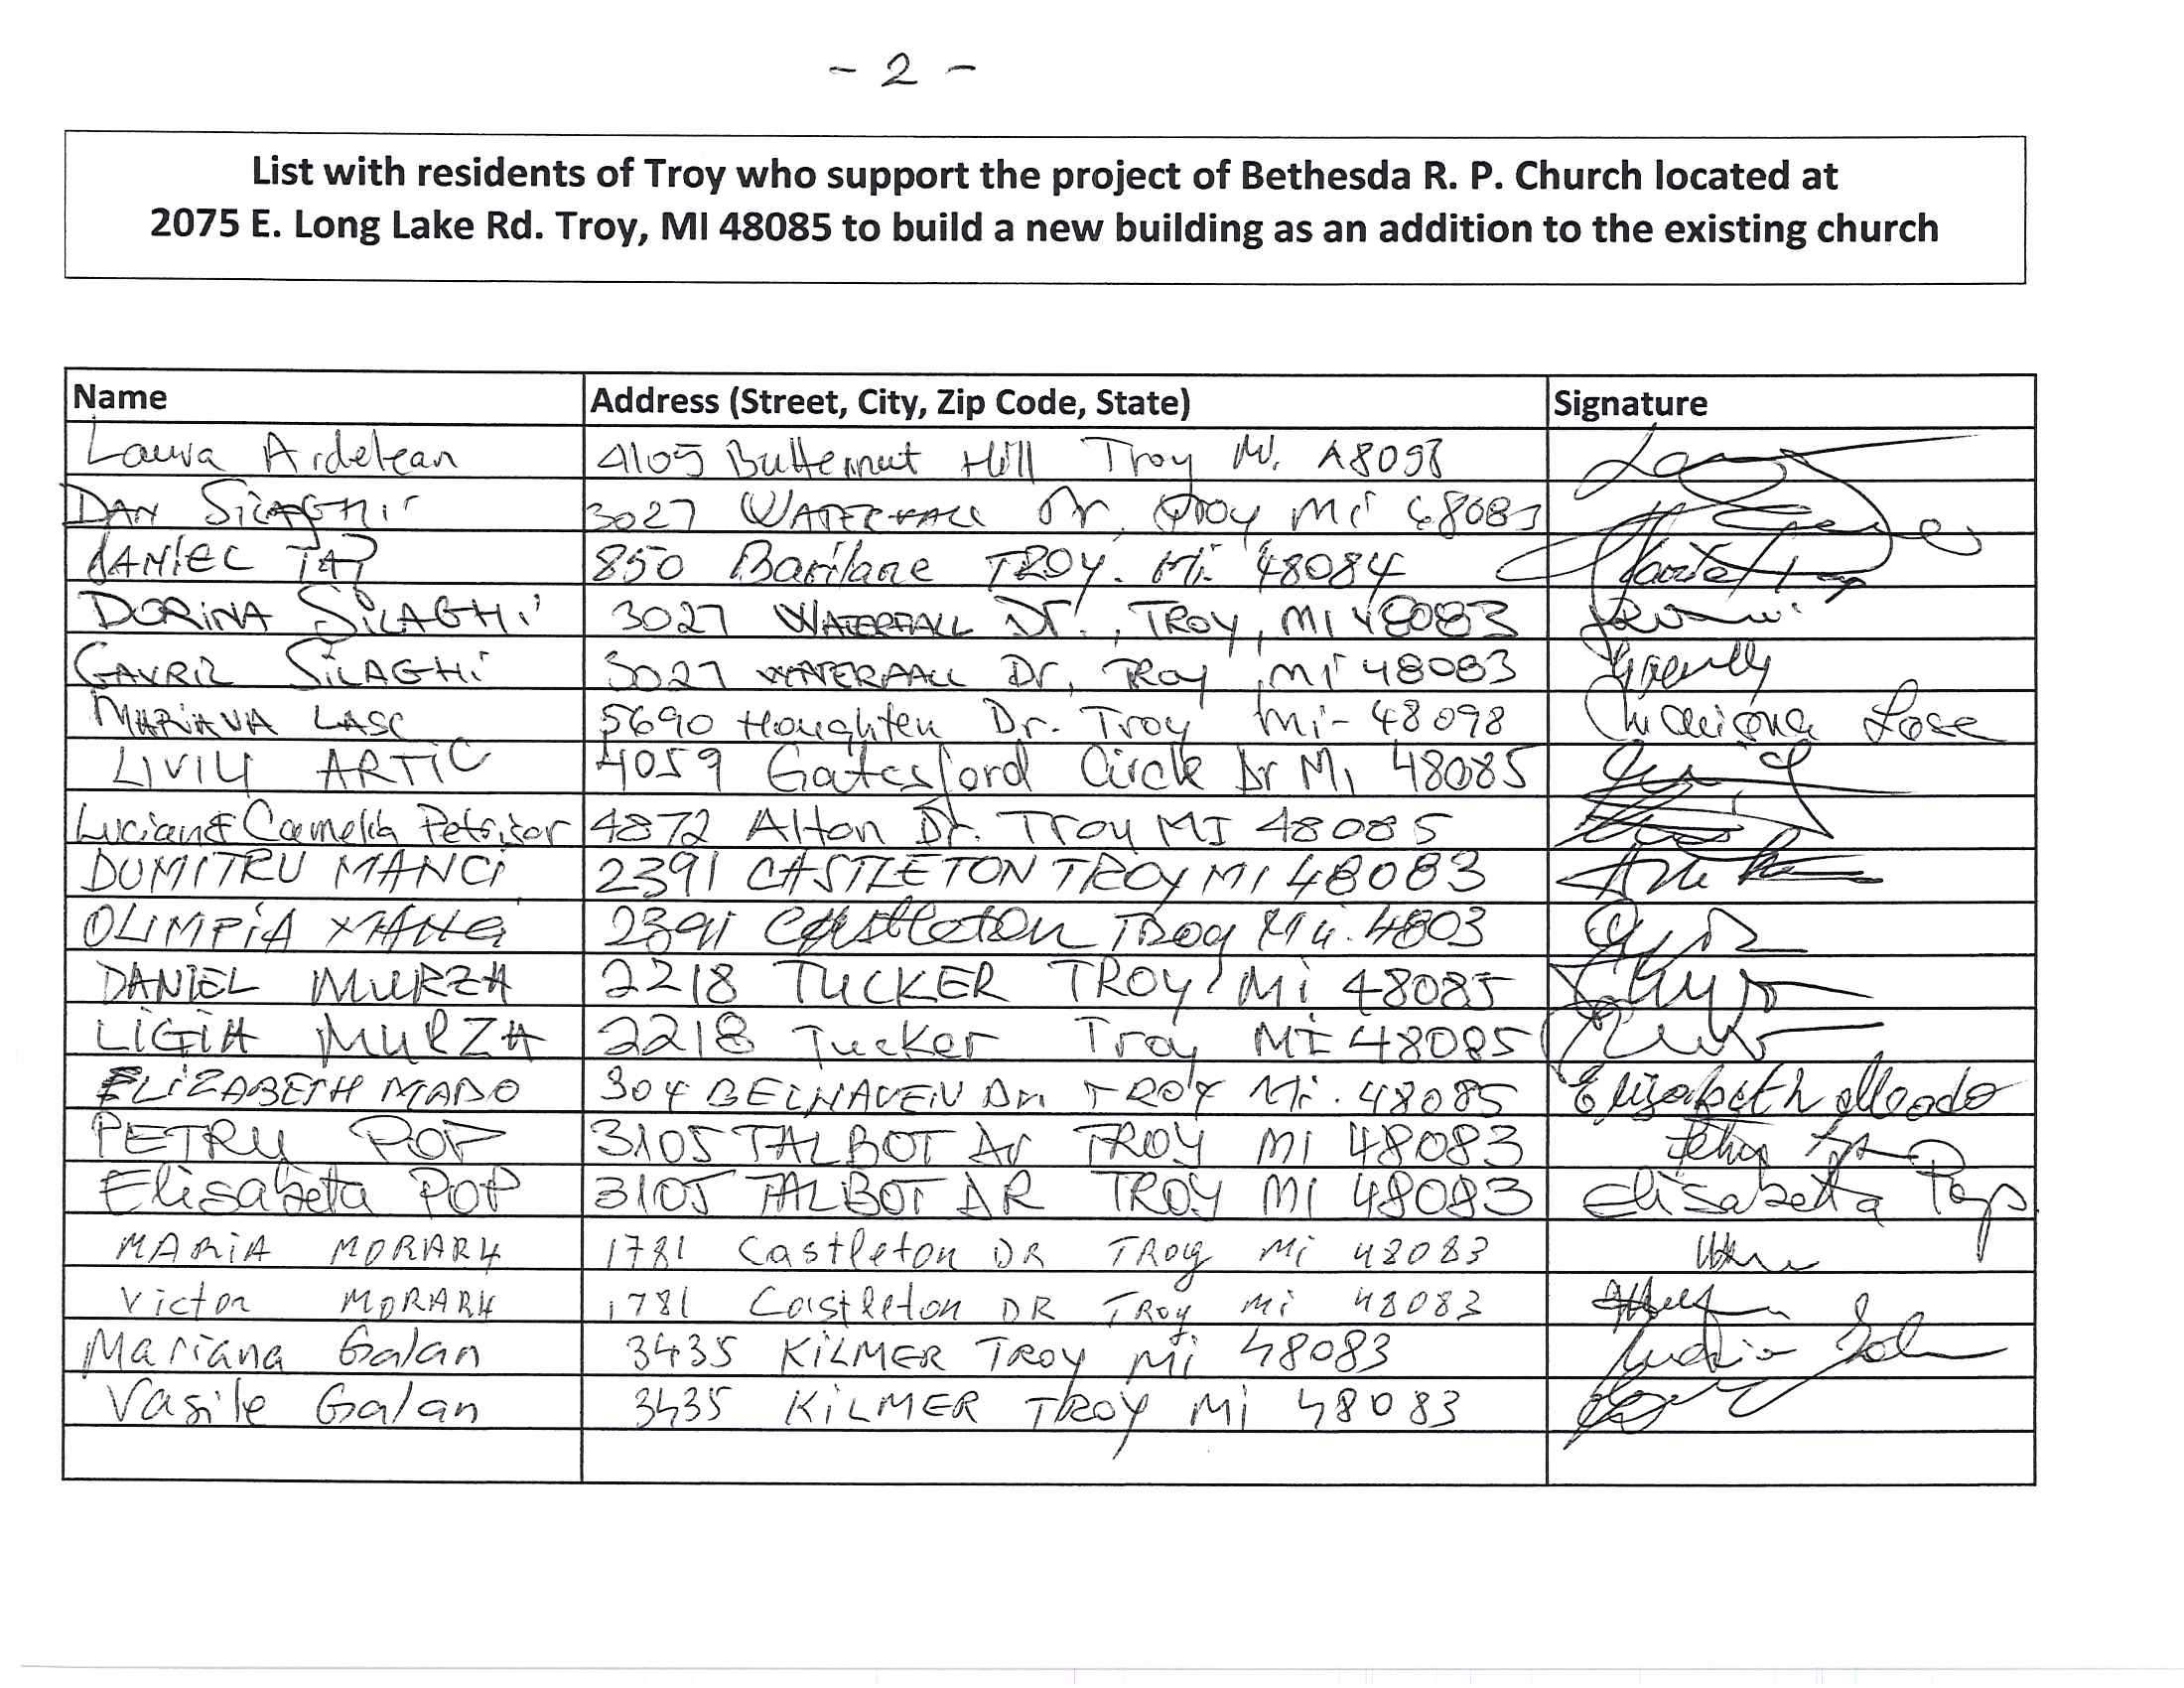 - 2 -
List with residents of Troy who support the project of Bethesda R. P. Church located at
2075 E. Long Lake Rd. Troy, MI 48085 to build a new building as an addition to the existing church
Name Address (Street, City, Zip Code, State) Signature
Laura Ardelean 4105 Butternut Hill Troy MI. 48098
DAN SILAGHI 3027 WATERFALL Dr. Troy Mi 48083
DANIEL TAP 850 Barilane TROY. Mi. 48084
DORINA SILAGHI 3027 WATERFALL Dr., TROY, MI 48083
GAVRIL SILAGHI 3027 WATERFALL Dr, TRoy, Mi 48083
MARIANA LASC 5690 Houghten Dr. Troy Mi- 48098 Mariana Lasc
LIVIU ARTIC 4059 Gatesford Circle Dr MI 48085
Lucian & Camelia Petrisor 4872 Alton Dr. Troy MI 48085
DUMITRU MANCI 2391 CASTLETON TROY MI 48083
OLIMPIA MANCI 2391 Castleton TRoy Mi. 4803
DANIEL MURZA 2218 TUCKER TROY, Mi 48085
LIGIA MURZA 2218 Tucker Troy MI 48085
ELIZABETH MADO 304 BELHAVEN Dr TROY Mi. 48085 Elizabeth Mado
PETRU POP 3105 TALBOT Dr TROY MI 48083
Elisabeta POP 3105 TALBOT DR TROY MI 48083 Elisabeta Pop
MARIA MORARU 1781 Castleton DR TROY Mi 48083
Victor MORARU 1781 Castleton DR TROY Mi 48083
Mariana Galan 3435 KILMER TROY Mi 48083
Vasile Galan 3435 KILMER TROY Mi 48083